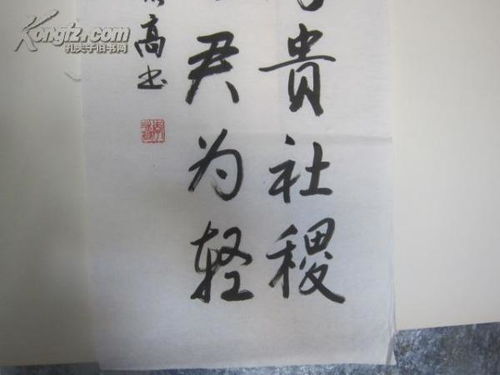 贵社稷
君为轻
高书
Kongfz.com
孔夫子旧书网